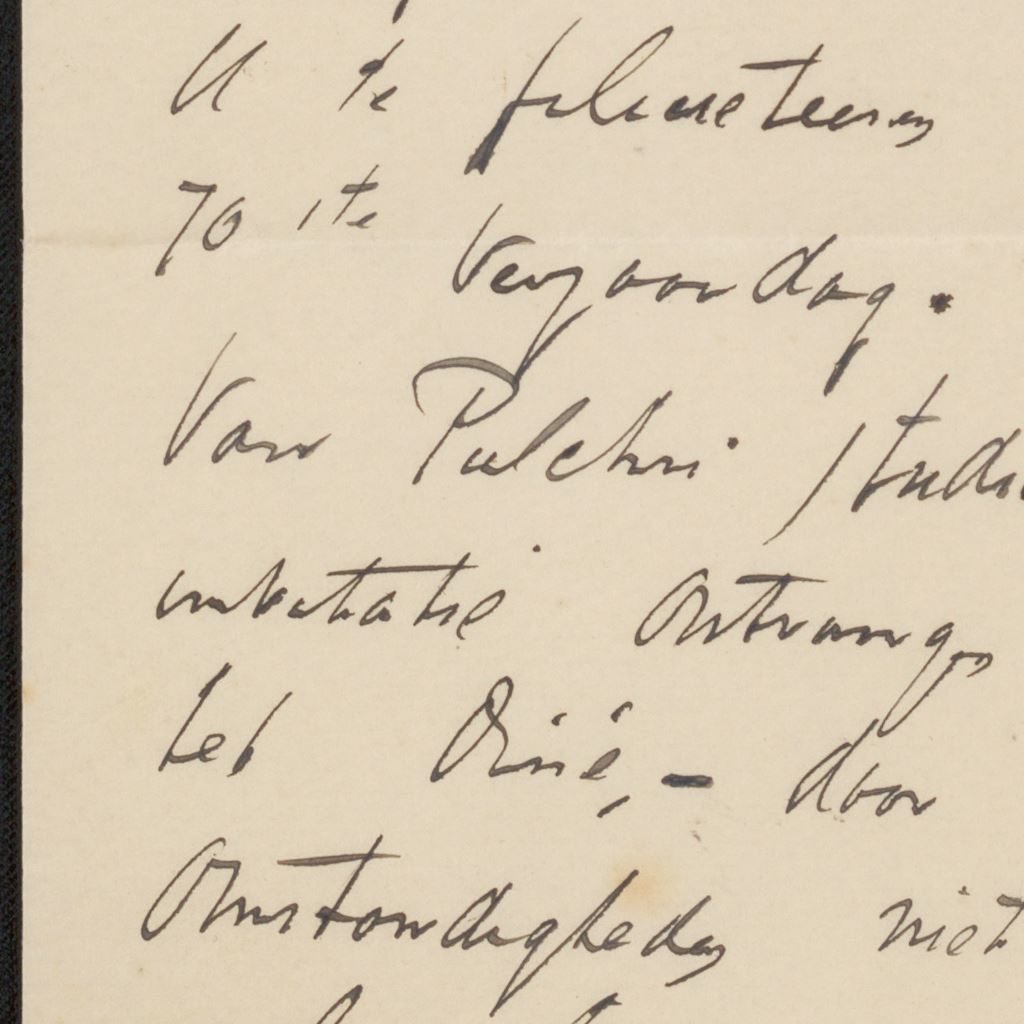 U te feliciteeren
70 ste Verjaardag.
Van Pulchri Studi
invitatie ontvangen
het Diné, - door
Omstandigheden niet